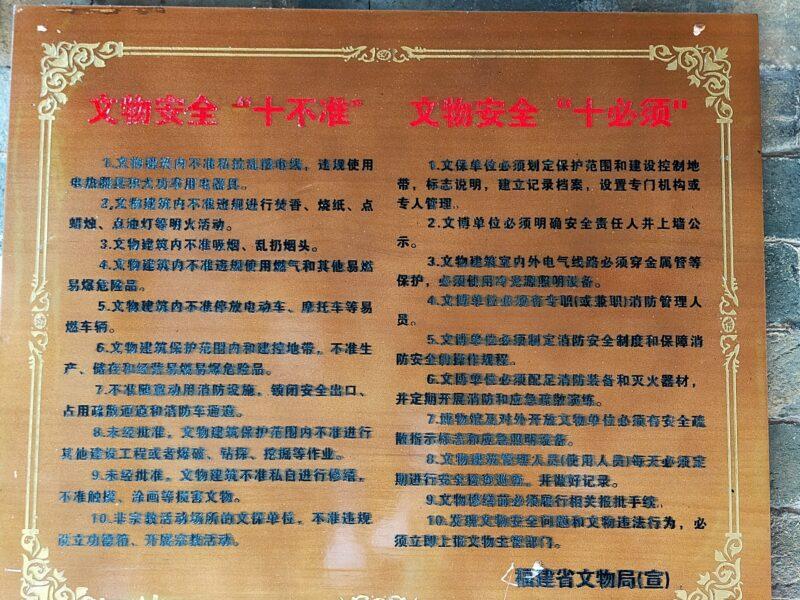 文物安全“十不准”
1.文物建筑内不准私拉乱接电线，违规使用
电热器具和大功率用电器具。
2.文物建筑内不准违规进行焚香、烧纸、点
蜡烛、点油灯等明火活动。
3.文物建筑内不准吸烟、乱扔烟头。
4.文物建筑内不准违规使用燃气和其他易燃
易爆危险品。
5.文物建筑内不准停放电动车、摩托车等易
燃车辆。
6.文物建筑保护范围内和建控地带，不准生
产、储存和经营易燃易爆危险品。
7.不准随意动用消防设施，锁闭安全出口、
占用疏散通道和消防车通道。
8.未经批准，文物建筑保护范围内不准进行
其他建设工程或者爆破、钻探、挖掘等作业。
9.未经批准，文物建筑不准私自进行修缮，
不准触摸、涂画等损害文物。
10.非宗教活动场所的文保单位，不准违规
设立功德箱、开展宗教活动。
文物安全“十必须"
1.文保单位必须划定保护范围和建设控制地
带，标志说明，建立记录档案，设置专门机构或
专人管理。
2.文博单位必须明确安全责任人并上墙公
示。
3.文物建筑室内外电气线路必须穿金属管等
保护，必须使用冷光源照明设备。
4.文博单位必须有专职(或兼职)消防管理人
员。
5.文博单位必须制定消防安全制度和保障消
防安全的操作规程。
6.文博单位必须配足消防装备和灭火器材，
并定期开展消防和应急疏散演练。
7.博物馆及对外开放文物单位必须有安全疏
散指示标志和应急照明设备。
8.文物建筑管理人员(使用人员)每天必须定
期进行安全检查巡查，并做好记录。
9.文物修缮前必须履行相关报批手续。
10.发现文物安全问题和文物违法行为，必
须立即上报文物主管部门。
福建省文物局(宣)